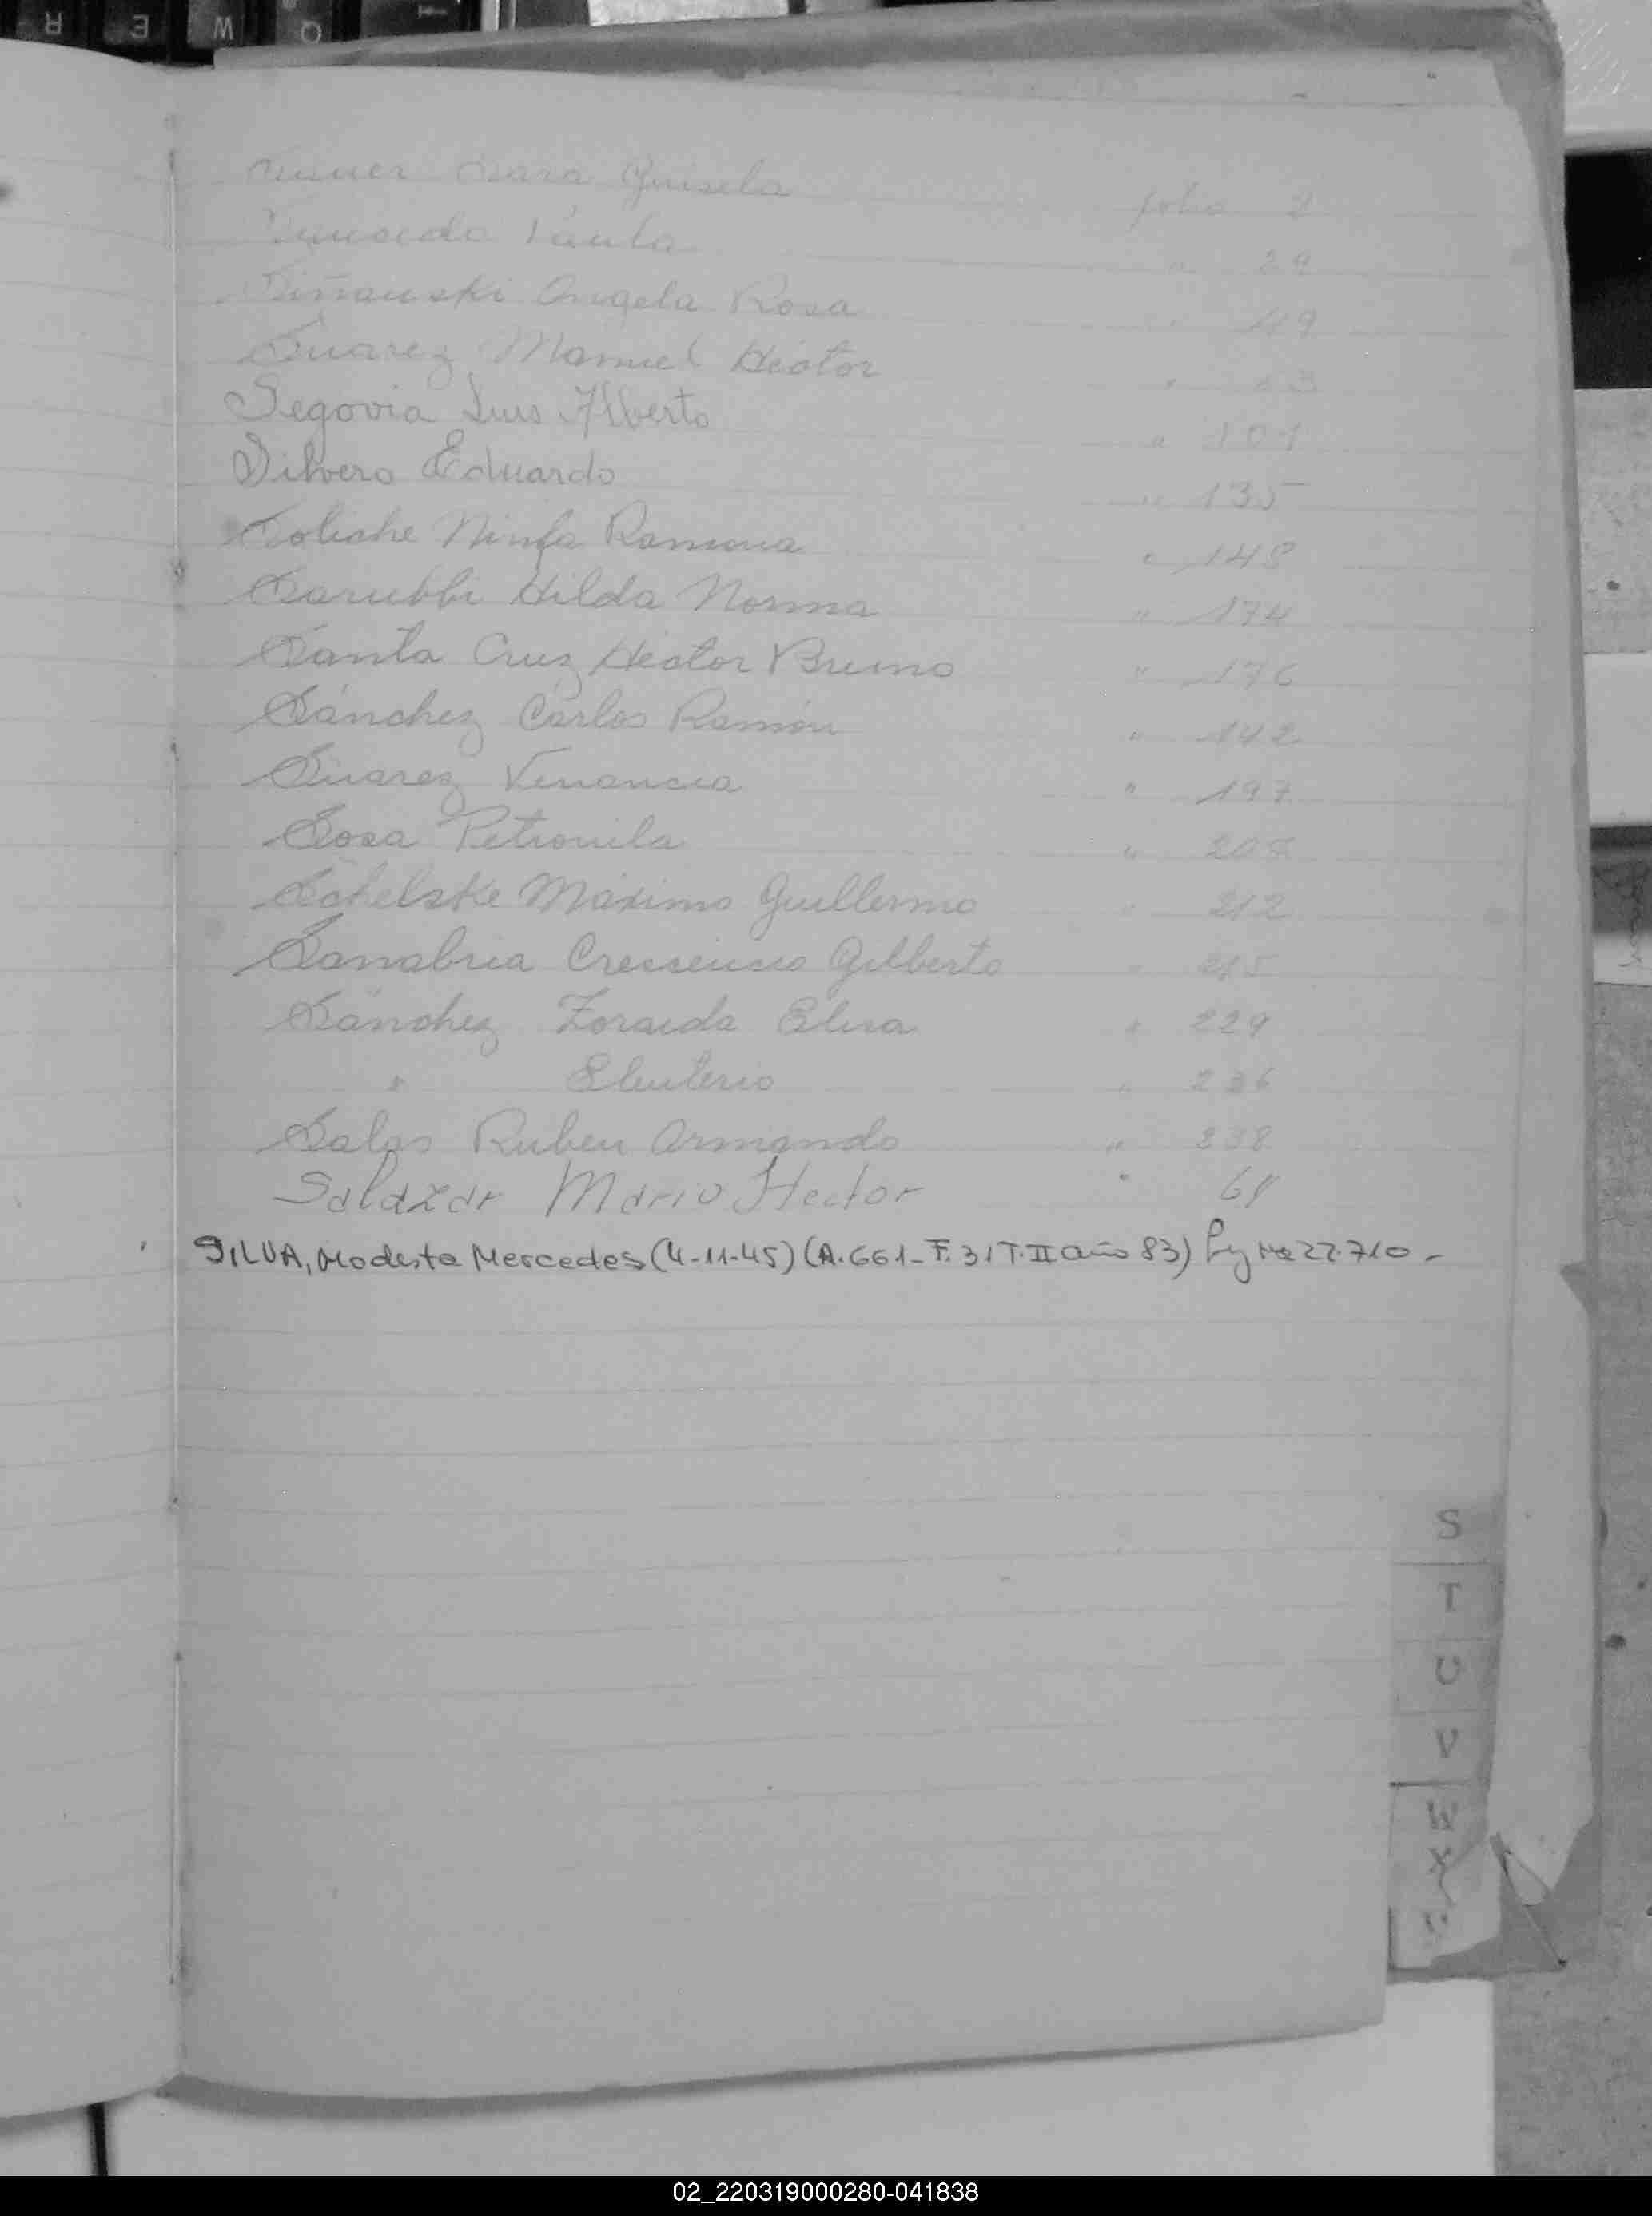 R E W Q
Guisela folio 2
Paula " 29
Angela Rosa " 49
Suarez Manuel Héctor "
Segovia Luis Alberto " 101
Silvero Eduardo " 135
Soliche Ninfa Ramona " 148
Sarubbi Hilda Norma " 174
Santa Cruz Héctor Bruno " 176
Sánchez Carlos Ramón " 142
Suarez Venancia " 197
Sosa Petronila "
Schelske Máximo Guillermo " 212
Sanabria Crescencio Gilberto " 215
Sánchez Zoraida Elisa " 229
" Eleuterio " 236
Salas Ruben Armando " 238
Salazar Mario Hector "
SILVA, Modesta Mercedes (4-11-45) (A.661-F.31T.II año 83) Ley Nº 22.710-
S
T
U
V
W
X
02_220319000280-041838